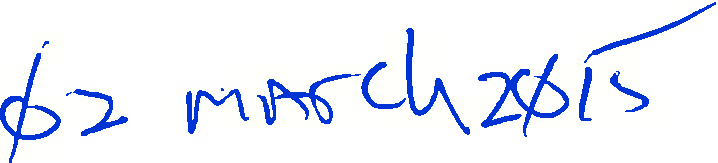 02 MARCH 2015